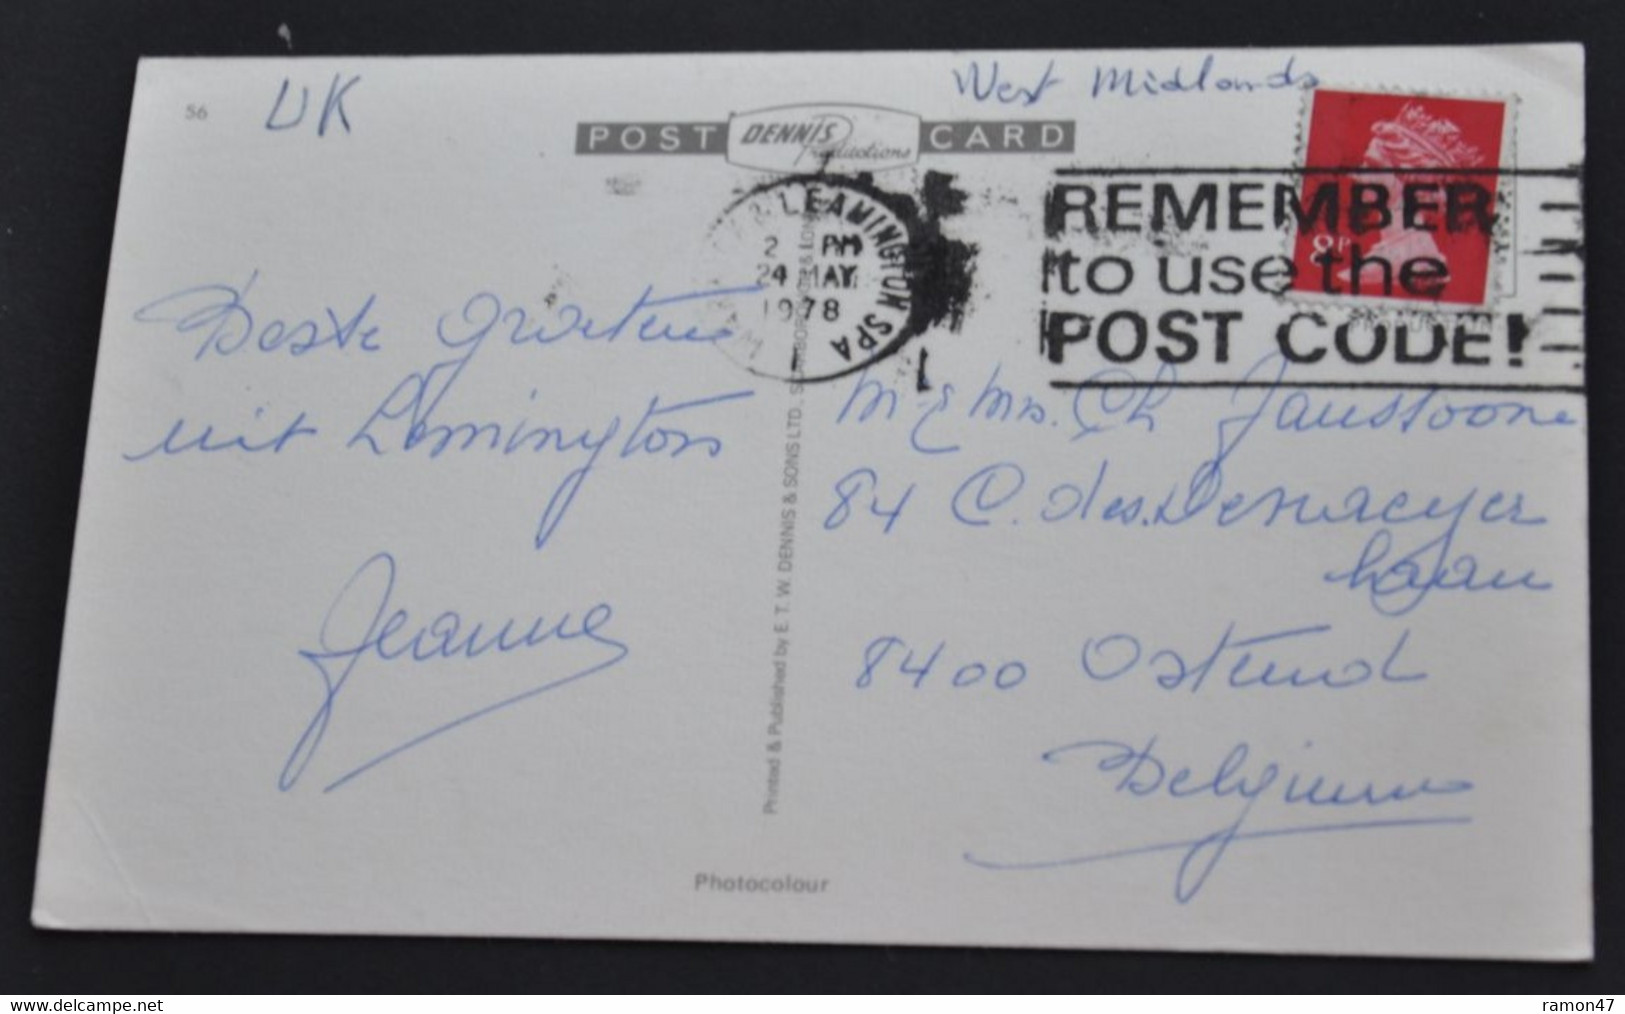 56
UK
West Midlands
POST DENNIS Productions CARD
LEAMINGTON SPA
2 PM
24 MAY
1978
REMEMBER
to use the
POST CODE!
8P
Beste groeten
uit Lemington
Jeanne
M & Mrs. Ch
84 C.
laan
8400 Ostend
Belgium
Printed & Published by E. T. W. DENNIS & SONS LTD., SCARBOROUGH & LONDON
Photocolour
ramon47